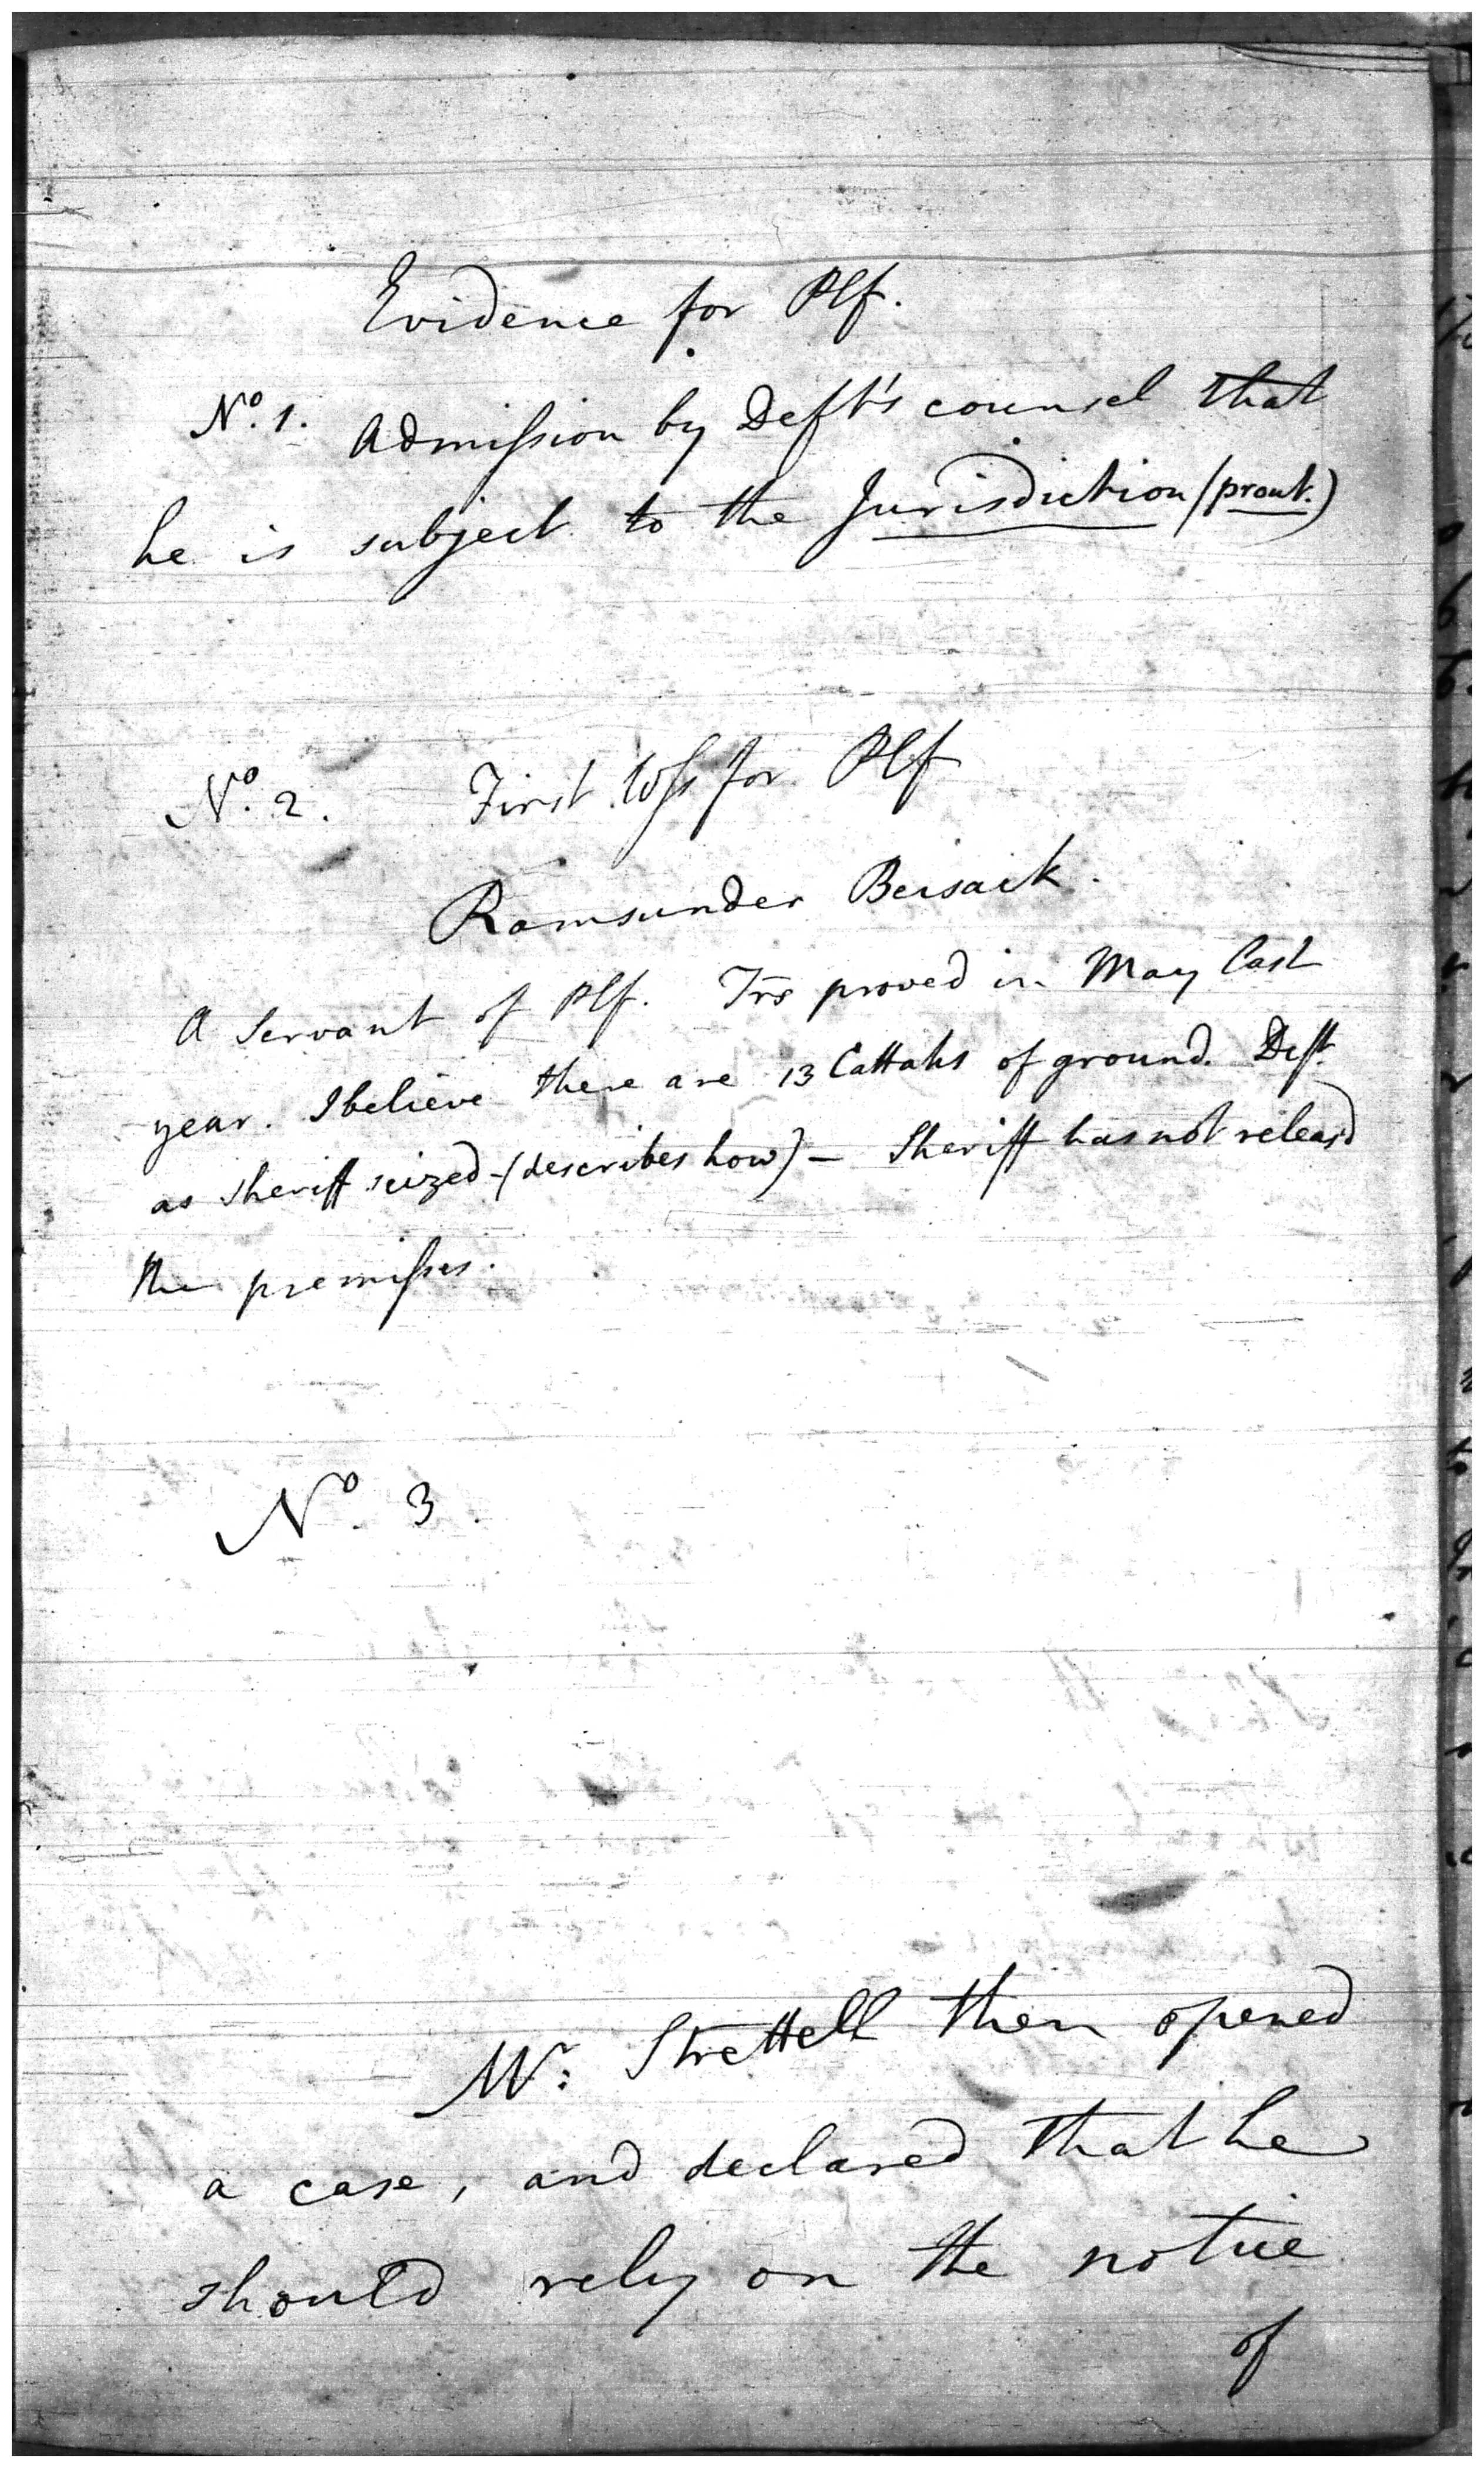 Evidence for Plf.
No. 1. Admission by Deft's counsel that
he is subject to the Jurisdiction (prout.)
No. 2. First Wss for Plf
Ramsunder Beisack.
A Servant of Plf. Trs proved in May last
year. I believe there are 13 Cattahs of ground. Deft.
as Sheriff seized - (describes how) - Sheriff has not releasd
the premisses.
No. 3.
Mr: Strettell then opened
a case, and declared that he
should rely on the notice
of